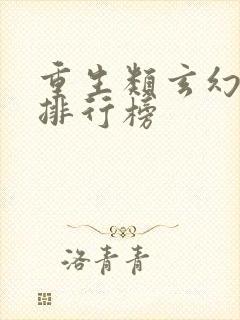 重生類玄幻
排行榜
洛青青